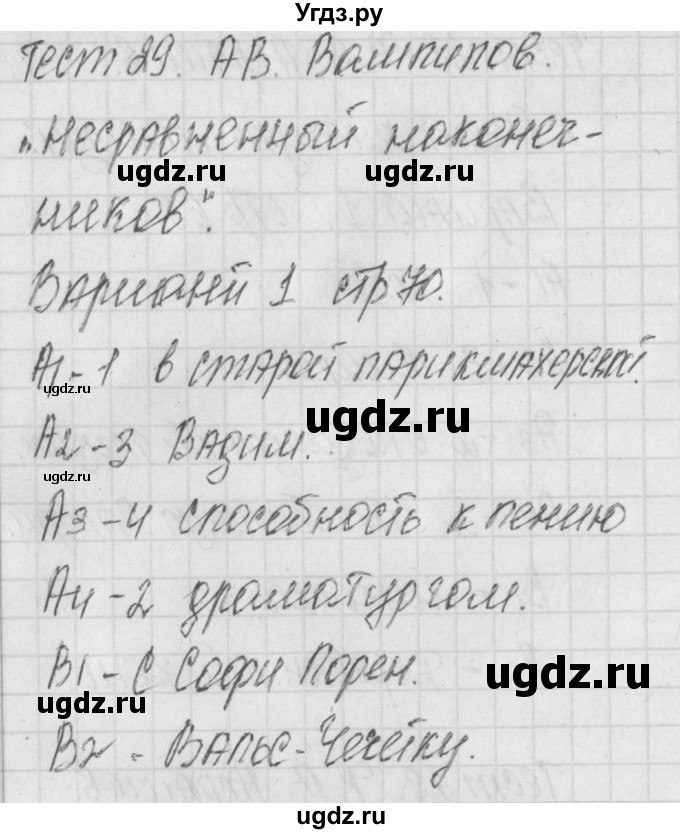 Угдз.ру
Тест 29. А.В. Вампилов.
„Несравненный Наконеч-
ugdz.ru ugdz.ru
ников".
Вариант 1 стр 70.
А1-1 в старой парикмахерской.
ugdz.ru
ugdz.ru
А2-3 Вадим.
ugdz.ru
А3-4 способность к пению
А4-2 драматургом.
В1-С Софи Лорен.
ugdz.ru
ugdz.ru
В2 - Вальс-Чечётку.
ugdz.ru
ugdz.ru
Угдз.ру